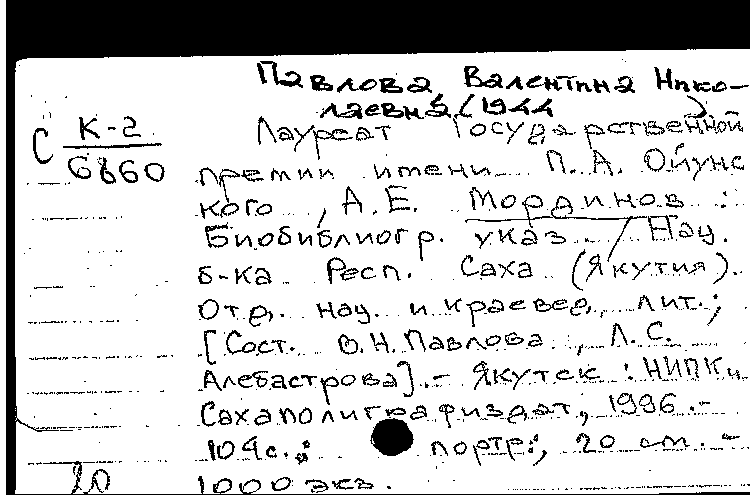 Павлова, Валентина Нико-
лаевна (1944 )
С К-2
6860
Лауреат Государственной
премии имени П. А. Ойунс
кого, А.Е. Мординов :
Биобиблиогр. указ. / Нац.
б-ка Респ. Саха (Якутия).
Отд. нац. и краевед. лит.;
[Сост. В.Н. Павлова, Л.С.
Алебастрова]. - Якутск : НИПК
Сахаполиграфиздат, 1996. -
104 с.: портр.; 20 см. -
20 1000 экз.